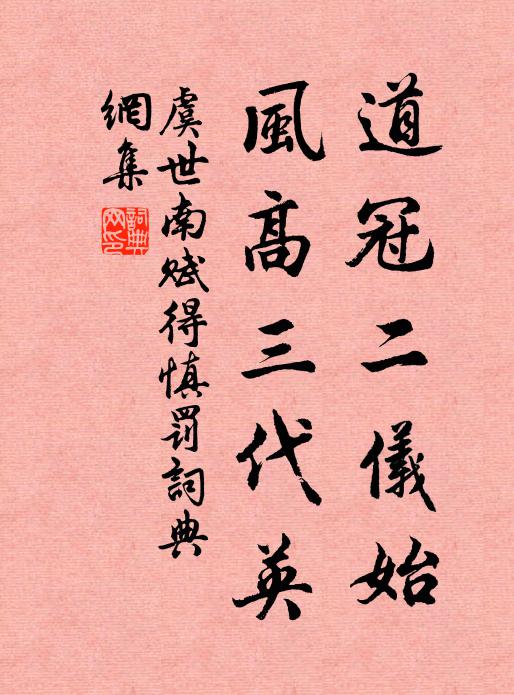 道冠二儀始
風高三代英
虞世南賦得慎罰詞典
網集
詞典網印